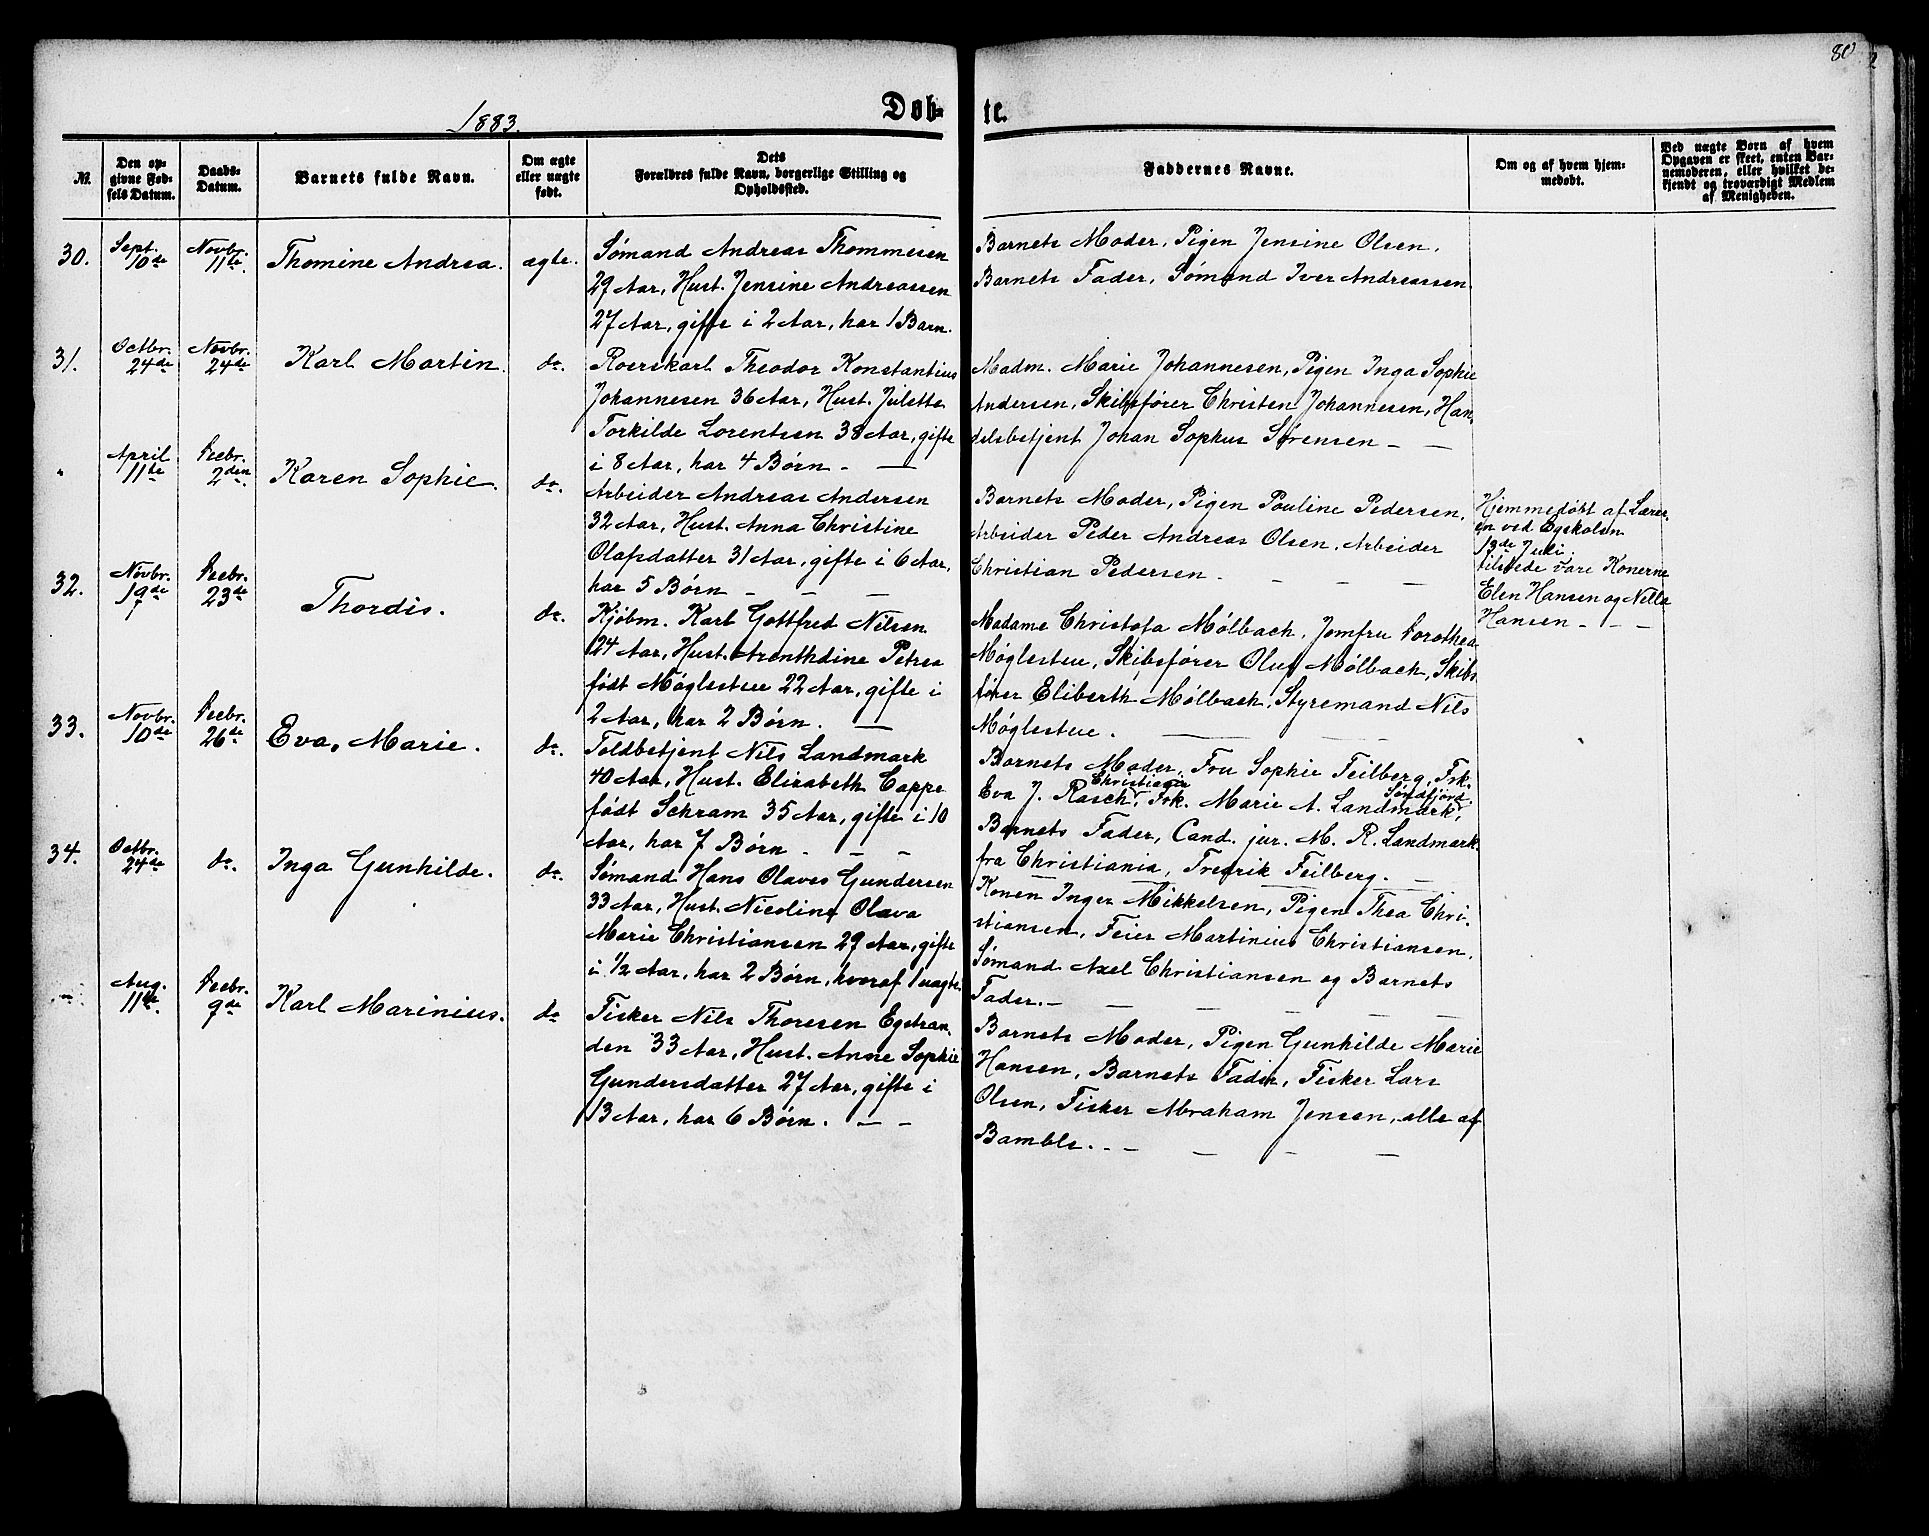 80
1883.
Døb-
te.
№.
Den op-
givne Fød-
sels Datum.
Daabs-
Datum.
Barnets fulde Navn.
Om ægte
eller uægte
født.
Dets
Forældres fulde Navn, borgerlige Stilling og
Opholdssted.
Faddernes Navne.
Om og af hvem hjem-
medøbt.
Ved uægte Børn af hvem
Opgaven er skeet, enten Bar-
nemoderen, eller hvilket be-
kjendt og troværdigt Medlem
af Menigheden.
30.
Sept.
10de
Novbr.
11te.
Thomine Andrea.
ægte.
Sømand Andreas Thommesen
29 Aar, Hust. Jensine Andreassen
27 Aar, gifte i 2 Aar, har 1 Barn.
Barnets Moder, Pigen Jensine Olsen.
Barnets Fader, Sømand Iver Andreassen.
31.
Octbr.
24de
Novbr.
24de
Karl Martin.
do.
Roerskarl Theodor Konstantius
Johannesen 36 Aar, Hust. Julette
Torkilde Lorentsen 38 Aar, gifte
i 8 Aar, har 4 Børn - —
Madm. Marie Johannesen, Pigen Inga Sophie
Andersen, Skibsfører Christen Johannesen, Han-
delsbetjent Johan Sophus Sørensen — —
April
11te
Decbr.
2den.
Karen Sophie.
do.
Arbeider Andreas Andersen
32 Aar, Hust. Anna Christine
Olafsdatter 31 Aar, gifte i 6 Aar,
har 5 Børn — — —
Barnets Moder, Pigen Pouline Pedersen,
Arbeider Peder Andreas Olsen, Arbeider
Christian Pedersen. — — —
Hjemmedøbt af Lærer-
en ved Egskolen
13de Juli.
tilstede vare Konerne
Elen Hansen og Nella
Hansen - - -
32.
Novbr.
19de
Decbr.
23de
Thordis.
do.
Kjøbm. Karl Gottfred Nilsen
24 Aar, Hust. Arenthdine Petrea
født Møglestue 22 Aar, gifte i
2 Aar, har 2 Børn. —
Madame Christofa Mølbach, Jomfru Dorothea
Møglestue, Skibsfører Oluf Mølbach, Skibs-
fører Eliberth Mølbach, Styremand Nils
Møglestue. — —
33.
Novbr.
10de
Decbr.
26de
Eva, Marie.
do.
Toldbetjent Nils Landmark
40 Aar, Hust. Elisabeth Cappe
født Schram 35 Aar, gifte i 10
Aar, har 7 Børn - — —
Barnets Moder, Fru Sophie Feilberg, Frk.
Eva J. Rasch, Frk. Marie A. Landmark,
Barnets Fader, Cand. jur. M. R. Landmark
fra Christiania, Fredrik Feilberg. —
34.
Octbr.
24de
do.
Inga Gunhilde.
do.
Sømand Hans Olaves Gundersen
33 Aar, Hust. Nicoline Olava
Marie Christiansen 29 Aar, gifte
i 1/2 Aar, har 2 Børn, hvoraf 1 uægte.
Konen Inger Mikkelsen, Pigen Thea Chri-
stiansen, Feier Martinius Christiansen,
Sømand Axel Christiansen og Barnets
Fader. — — — — —
Aug.
11te.
Decbr.
9de
Karl Marinius.
do
Fisker Nils Thoresen Egstran-
den 33 Aar, Hust. Anne Sophie
Gundersdatter 27 Aar, gifte i
13 Aar, har 6 Børn. — —
Barnets Moder, Pigen Gunhilde Marie
Hansen, Barnets Fader, Fisker Lars
Olsen, Fisker Abraham Jensen, alle af
Bamble. - — — — —